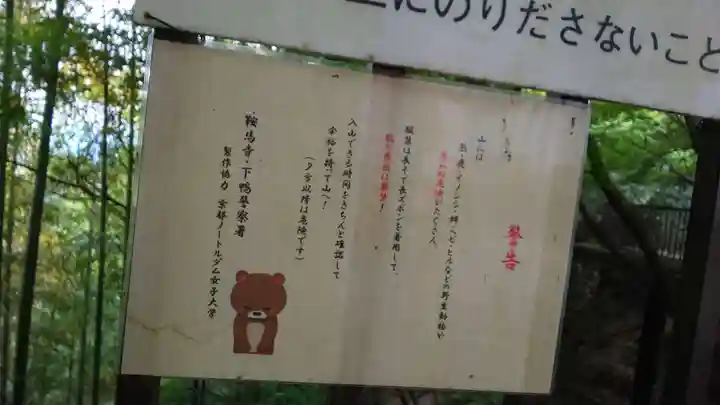 にのりださないこと
警告
山には
熊・鹿・イノシシ・蜂・ヘビ・ヒルなどの野生動物や
危険がたくさん
服装は長そで長ズボンを着用して、
肌の露出は厳禁！
入山できる時間をきちんと確認して
余裕を持って山へ！
(夕方以降は危険です)
鞍馬寺・下鴨警察署
製作協力 京都ノートルダム女子大学